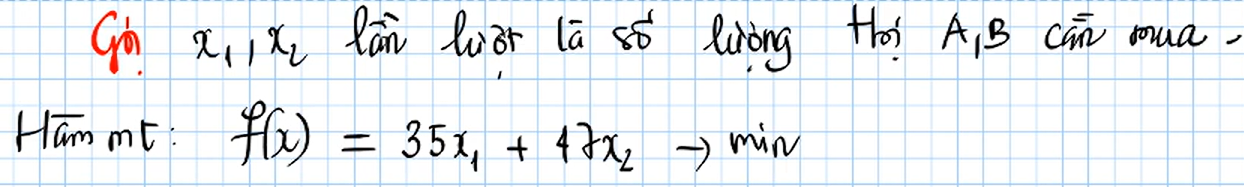 Gọi x₁, x₂ lần lượt là số lượng Thịt A, B cần mua.
Hàm mt: f(x) = 35x₁ + 47x₂ → min